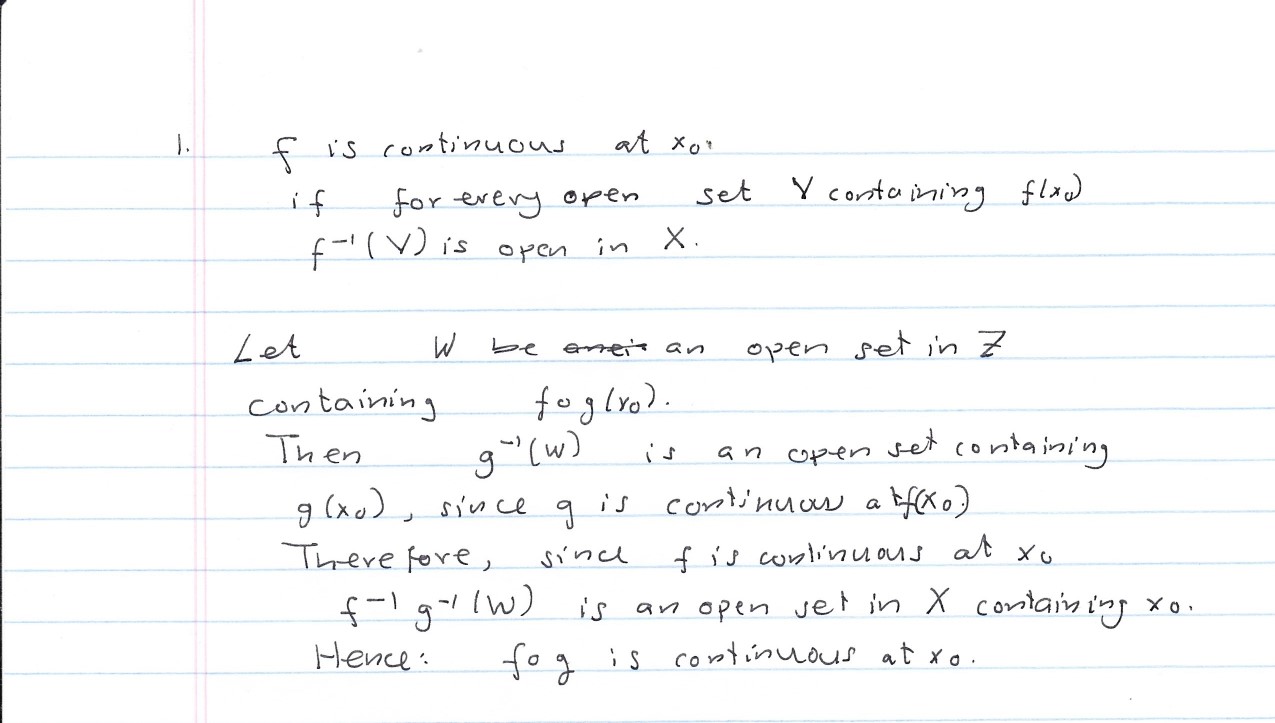 1. f is continuous at x₀.
if for every open set V containing f(x₀)
f⁻¹(V) is open in X.
Let W be an open set in Z
containing f∘g(x₀).
Then g⁻¹(W) is an open set containing
g(x₀), since g is continuous at f(x₀)
Therefore, since f is continuous at x₀
f⁻¹g⁻¹(W) is an open set in X containing x₀.
Hence: f∘g is continuous at x₀.